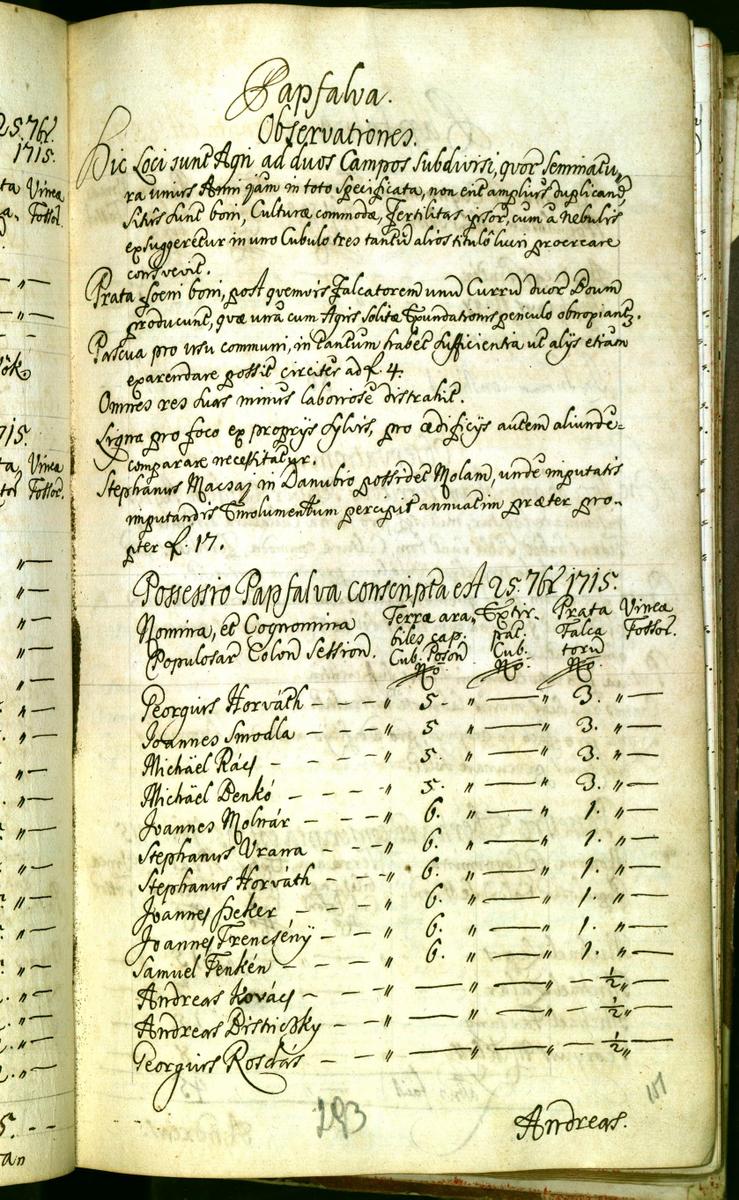 25. 7br.
1715.
ta Vinea
Fossor.
ök
715.
ta, Vinea
tor Fossor.
Papfalva.
Observationes.
Hic Loci sunt Agri ad duos Campos subdivisi, quor Seminatu„
ra unius Anni jam in toto specificata, non erit amplius duplicand,
sitûs sunt boni, Culturæ commodæ, Fertilitas ipsor, cum a Nebulis
exsuggeretur in uno Cubulo tres tantum alios titulô lucri procreare
consvevit.
Prata foeni boni, post quemvis Falcatorem unu Curru duor Boum
producunt, quæ una cum Agris solitæ Exundationis periculo obnoxiantr.
Pascua pro usu communi, in tantum habet sufficientia ut alijs etiam
exarendare possit circiter ad f. 4.
Omnes res suas minus laboriose distrahit.
Ligna pro foco ex proprijs sylvis, pro ædificijs autem aliunde=
comparare necessitatur.
Stephanus Macsaj in Danubio possidet Molam, unde imputatis
imputandis Emolumentum percipit annuatim præter pro„
pter f. 17.
Possessio Papfalva conscripta est 25. 7br 1715.
Nomina, et Cognomina Terræ ara„ Extir„ Prata Vinea
Populosar Colon Session. biles cap. pat. Falca Fossor.
Cub. Poson Cub. toru
No. No. No.
Georgius Horváth – – – „ 5. „ — „ 3. „ —
Joannes Smodla – – – „ 5 „ — „ 3. „ —
Michäel Rácz – – – „ 5. „ — „ 3. „ —
Michäel Benkó – – – „ 5. „ — „ 3. „ —
Joannes Molnár – – – „ 6. „ — „ 1. „ —
Stephanus Vrana – – – „ 6. „ — „ 1. „ —
Stephanus Horváth – – – „ 6. „ — „ 1. „ —
Joannes Heker – – – „ 6. „ — „ 1. „ —
Joannes Trencsény – – – „ 6. „ — „ 1. „ —
Samuel Fenkén – – – „ 6. „ — „ 1. „ —
Andreas Kovács – – – „ — „ — „ – ½ „ —
Andreas Bistriczky – – – „ — „ — „ – ½ „ —
Georgius Rosdás – – – „ — „ — „ – ½ „ —
293
151
Andreas.